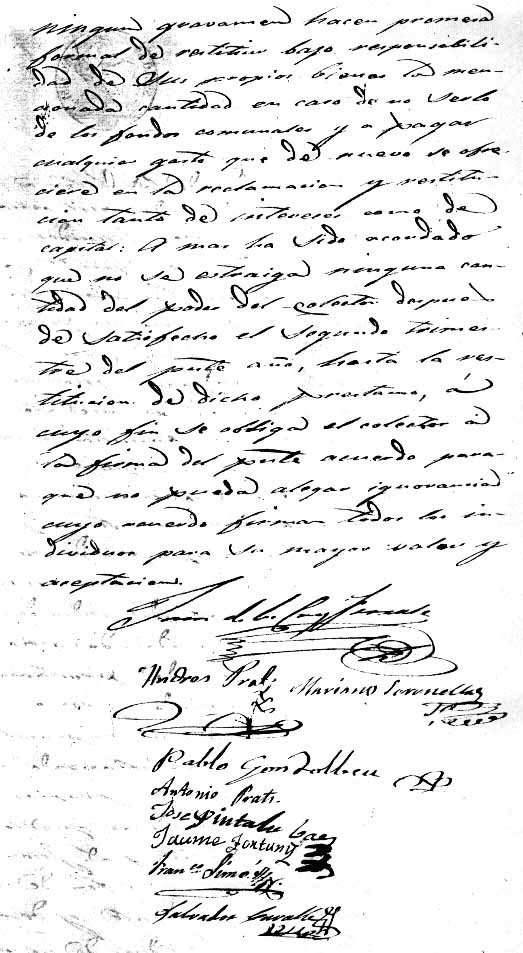 ningun gravamen hacen promesa
formal de restituir bajo responsibili-
dad de sus propios bienes la men-
cionada cantidad en caso de no serlo
de los fondos comunales y a pagar
cualquier gasto que de nuevo se ofre-
ciere en la reclamacion y restitu-
cion tanto de intereses como de
capital: A mas ha sido acordado
que no se estraiga ninguna can-
tidad del poder del colector despues
de satisfecho el segundo trimes-
tre del pnte año, hasta la res-
titucion de dicho prestamo, á
cuyo fin se obliga el colector á
la firma del pnte acuerdo para-
que no pueda alegar ignorancia
cuyo acuerdo firman todos los in-
dividuos para su mayor valor y
aceptacion.
Juan de la Cruz
Andres Prats Mariano
Pablo
Antonio Prats.
Jose Pintalu
Jaume Fortuny
Franco. Simó
Salvador